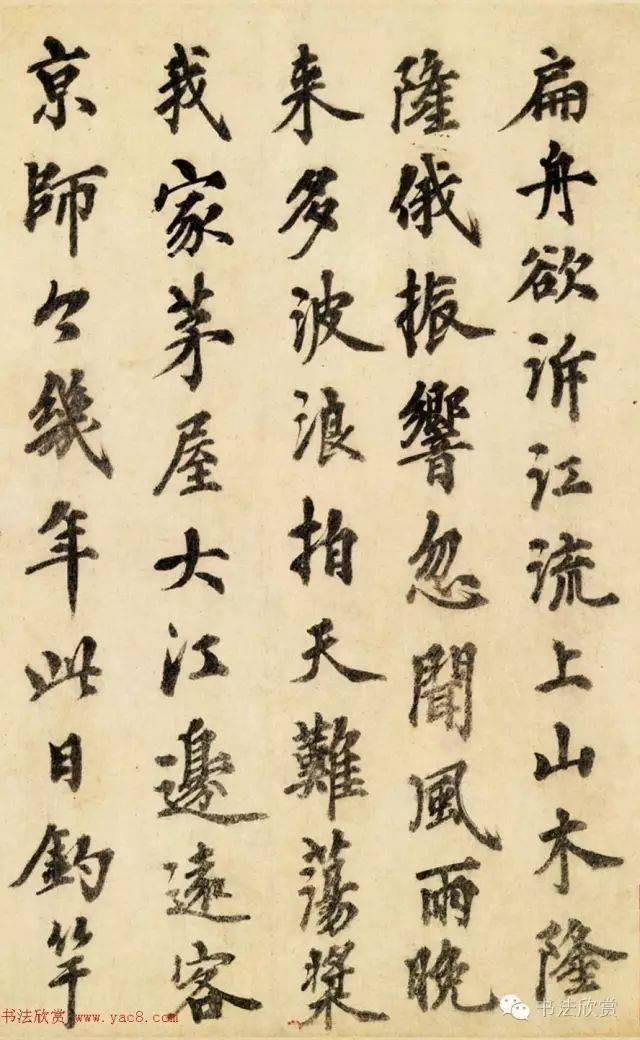 扁舟欲泝江流上山木隆
隆俄振響忽聞風雨晚
来多波浪拍天難蕩槳
我家茅屋大江邊遠客
京師今幾年此日釣竿
书法欣赏 www.yac8.com
书法欣赏